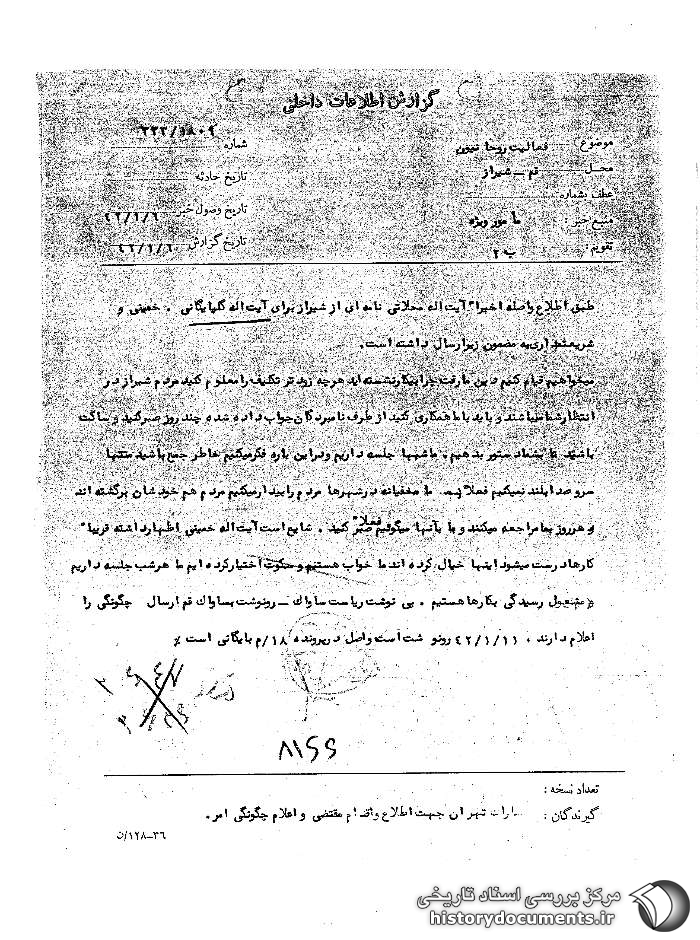 گزارش اطلاعات داخلی
موضوع فعالیت روحانیون
شماره ۳۲۲/۱۸۰۹
محل قم ــ شیراز
تاریخ حادثه
عطف بشماره
تاریخ وصول خبر ۴۲/۱/۶
منبع خبر : مامور ویژه
تاریخ گزارش ۴۲/۱/۶
تقویم : ب ـ ۲
طبق اطلاع واصله اخیرا" آیت اله محلاتی نامه ای از شیراز برای آیت اله گلپایگانی ، خمینی و
شریعتمداری به مضمون زیر ارسال داشته است.
میخواهیم قیام کنیم چرا بیکار نشسته اید هرچه زودتر تکلیف را معلوم کنید مردم شیراز در
انتظار شما میباشند و باید با ما همکاری کنید از طرف نامبردگان جواب داده شده چند روز صبر کنید و ساکت
باشید تا بشما دستور بدهیم ، ما شبها جلسه داریم و در این باره فکر میکنیم خاطر جمع باشید منتها
سر و صدا بلند نمیکنیم فعلا" ما مخفیانه در شهرها مردم را بیدار میکنیم مردم هم خودشان برگشته اند
و هر روز بما مراجعه میکنند و ما بآنها میگوئیم فعلا" صبر کنید . شایع است آیت اله خمینی اظهار داشته قریبا"
کارها درست میشود اینها خیال کرده اند ما خواب هستیم و سکوت اختیار کرده ایم ما هر شب جلسه داریم
و مشغول رسیدگی بکارها هستیم . پی نوشت ریاست ساواک ــ رونوشت بساواک قم ارسال چگونگی را
اعلام دارند . ۴۲/۱/۱۱ رونوشت است و اصل در پرونده ۱۸/م بایگانی است ٪
۸۱۶۶
تعداد نسخه :
گیرندگان : تهران جهت اطلاع و اقدام مقتضی و اعلام چگونگی امر .
۳۶ــ۱۲۸/ن
مرکز بررسی اسناد تاریخی
historydocuments.ir